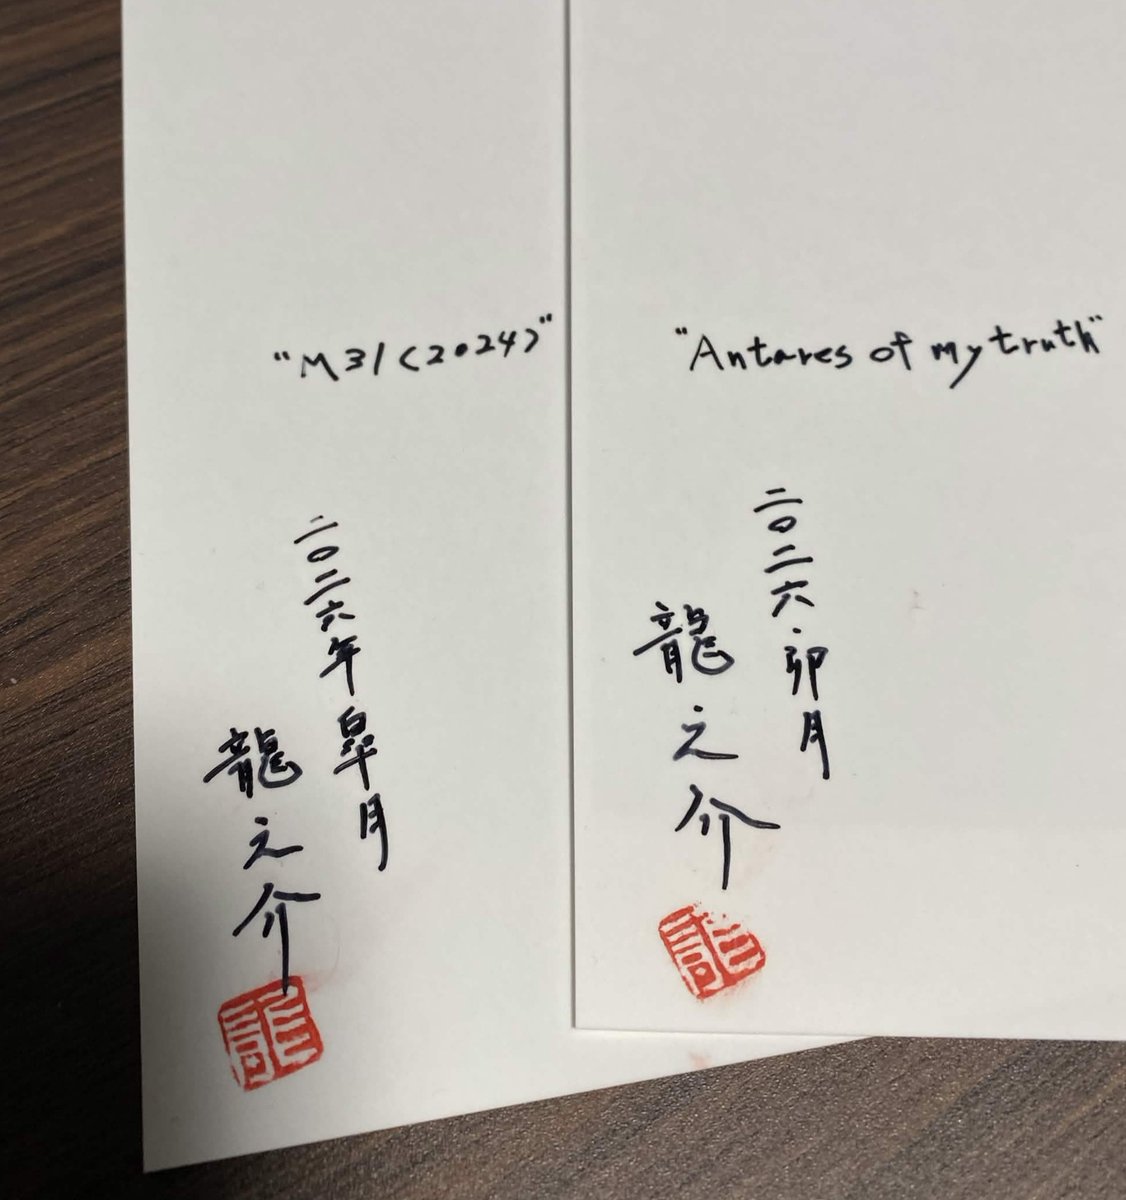 "M31(2024)"
二〇二六年 皐月
龍之介
"Antares of my truth"
二〇二六.卯月
龍之介